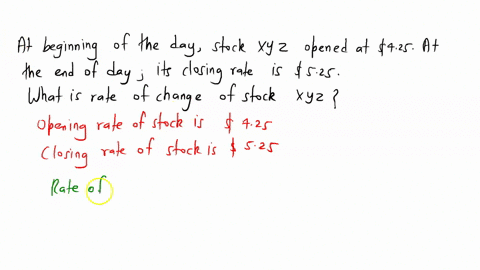 At beginning of the day, stock xyz opened at $4.25. At
the end of day, its closing rate is $5.25.
What is rate of change of stock xyz?
Opening rate of stock is $ 4.25
Closing rate of stock is $ 5.25
Rate of